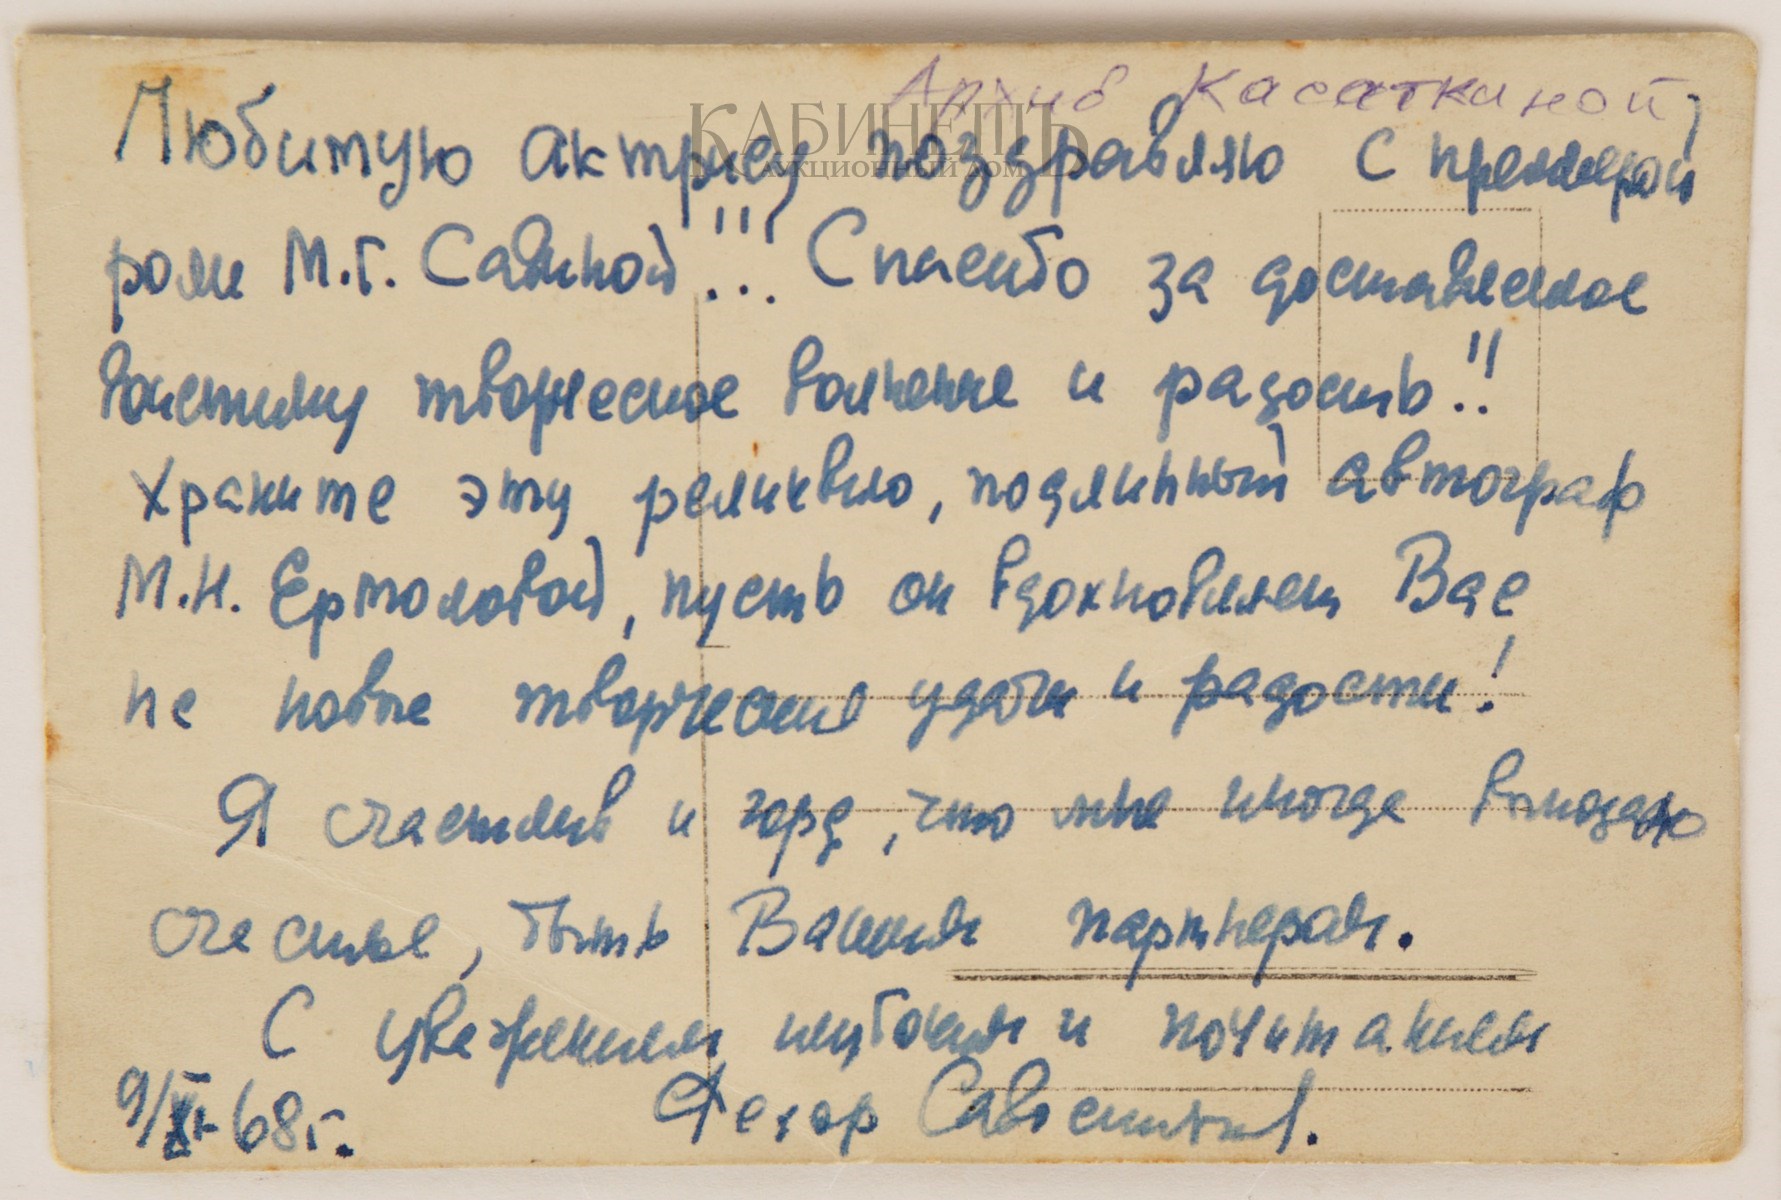 Архив Касаткиной
КАБИНЕТЪ
АУКЦИОННЫЙ ДОМ
Любимую актрису поздравляю с премьерой
роли М.Г. Савиной!!! Спасибо за доставленное
воистину творческое волнение и радость!!
Храните эту реликвию, подлинный автограф
М.Н. Ермоловой, пусть он вдохновляет Вас
не новые творческие удачи и радости!
Я счастлив и горд, что мне иногда выпадало
счастье, быть Вашим партнером.
С уважением глубоким и почитанием
9/ 68г. Федор